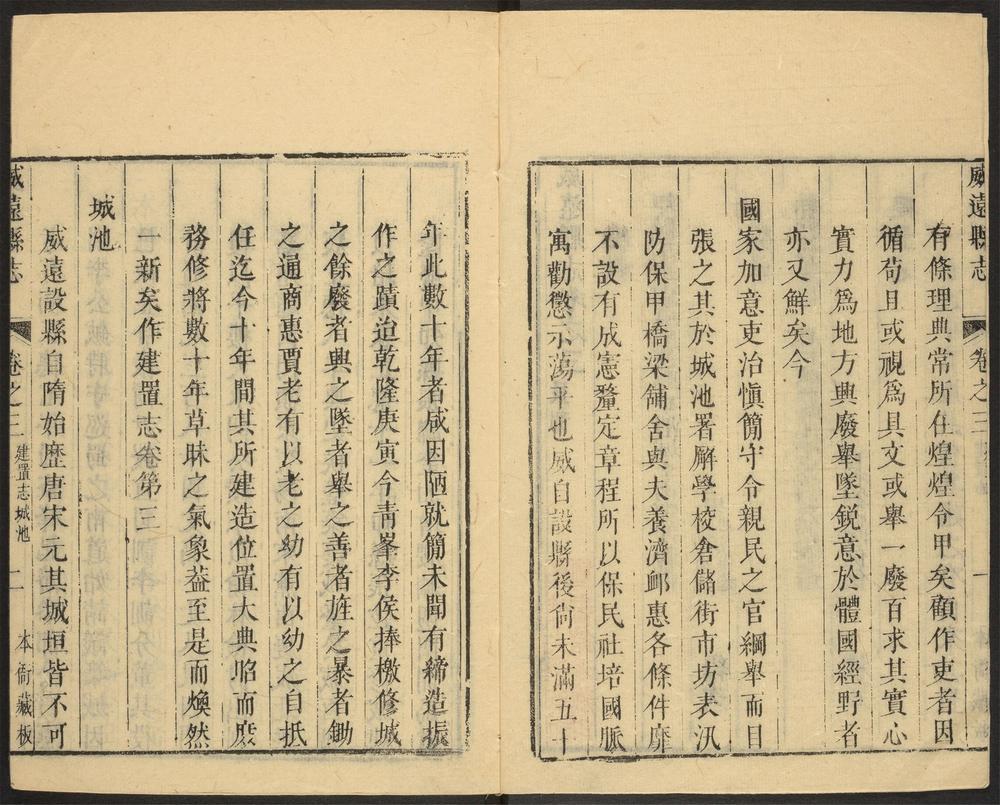 威遠縣志
卷之三
一
有條理典常所在煌煌令甲矣顧作吏者因
循苟且或視爲具文或舉一廢百求其實心
實力爲地方興廢舉墜銳意於體國經野者
亦又鮮矣今
國家加意吏治愼簡守令親民之官綱舉而目
張之其於城池署廨學校倉儲街市坊表汛
防保甲橋梁舖舍與夫養濟郵惠各條件靡
不設有成憲釐定章程所以保民社培國脈
寓勸懲示蕩平也威自設縣後尙未滿五十
年此數十年者咸因陋就簡未聞有締造振
作之蹟迨乾隆庚寅今靑峯李侯捧檄修城
之餘廢者興之墜者舉之善者旌之暴者鋤
之通商惠賈老有以老之幼有以幼之自抵
任迄今十年間其所建造位置大典昭而庶
務修將數十年草昧之氣象葢至是而煥然
一新矣作建置志卷第三
城池
威遠設縣自隋始歷唐宋元其城垣皆不可
威遠縣志
卷之三
建置志城池
二
本衙藏板